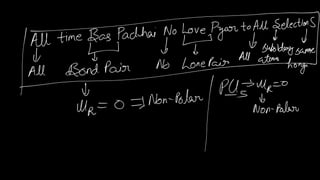 All time Bas Padhai No Love Pyar to All Selections
All Bond Pair No Lone Pair All surrounding same
atom hong
μR = 0 ⇒ Non-Polar
PUS → μR = 0
Non-Polar